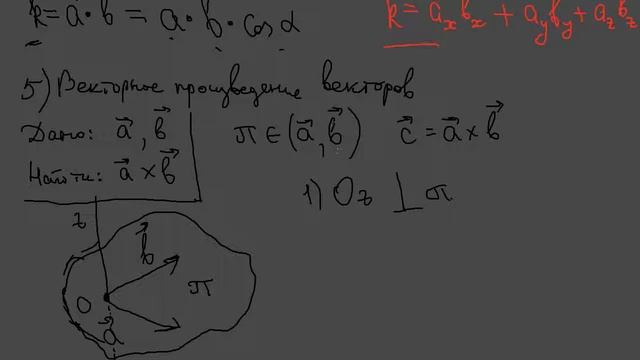 k = a⃗ · b⃗ = a · b · cos α
k = aₓbₓ + a_y b_y + a_z b_z
5) Векторное произведение векторов
Дано: a⃗, b⃗
π ∈ (a⃗, b⃗) c⃗ = a⃗ × b⃗
Найти: a⃗ × b⃗
1) Oz ⊥ π
z
b⃗
π
O
a⃗